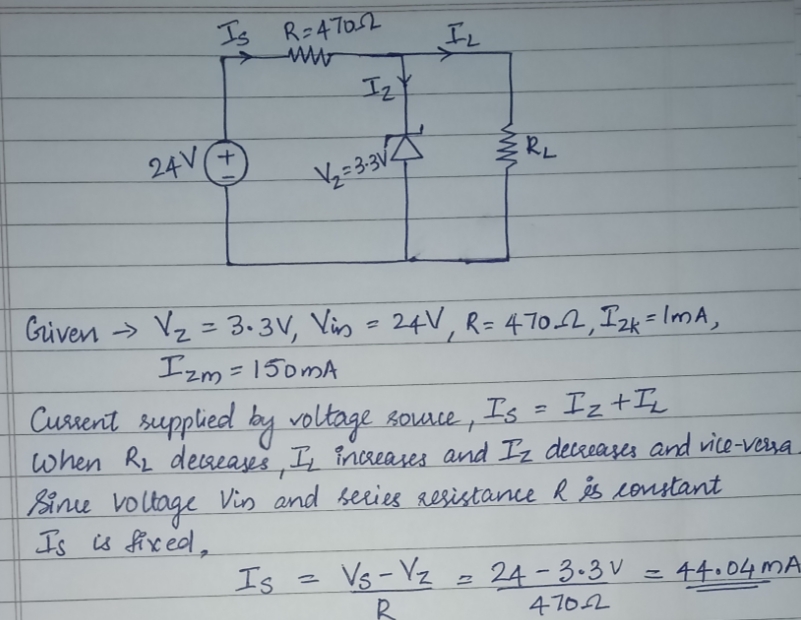 Is R=470Ω IL
Iz
24V + - Vz=3.3V RL
Given → Vz = 3.3V, Vin = 24V, R= 470Ω, Izk=1mA,
Izm = 150mA
Current supplied by voltage source, Is = Iz + IL
When RL decreases, IL increases and Iz decreases and vice-versa.
Since voltage Vin and series resistance R is constant
Is is fixed,
Is = Vs - Vz / R = 24 - 3.3V / 470Ω = 44.04mA